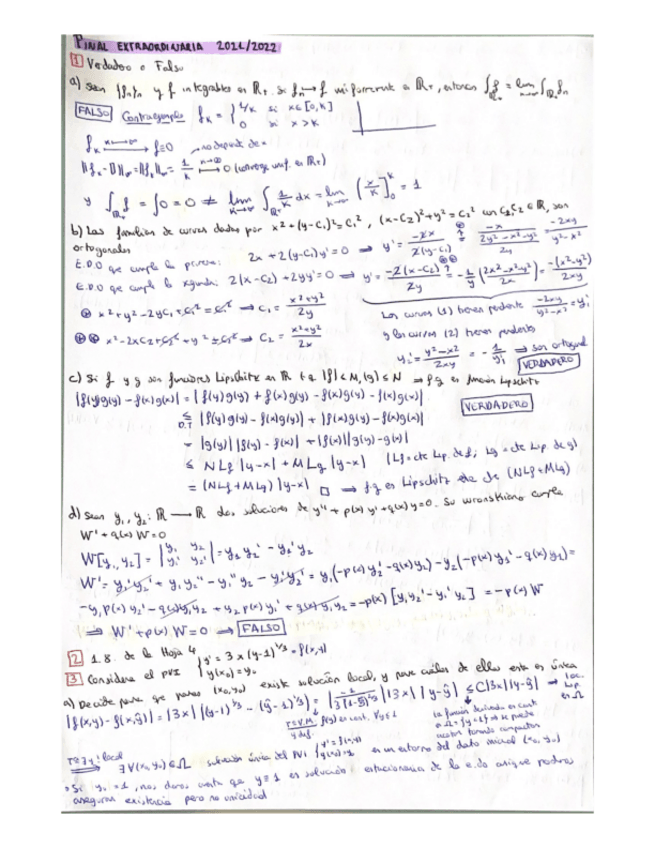 FINAL EXTRAORDINARIA 2021/2022
1 Verdadero o Falso
a) Sean {fn}n y f integrables en ℝ+. Si fn → f uniformemente en ℝ+, entonces ∫ℝ+ f = lim n→∞ ∫ℝ+ fn
FALSO Contraejemplo fk = { 1/k si x∈[0,k]
0 si x>k
fk k→∞ → f≡0 no depende de x
‖fk - 0‖∞ = ‖fk‖∞ = 1/k n→∞ → 0 (converge unif. en ℝ+)
y ∫ℝ+ f = ∫0 = 0 ≠ lim k→∞ ∫ℝ+ 1/k dx = lim k→∞ (x/k]0^k = 1
b) Las familias de curvas dadas por x²+(y-C1)²=C1², (x-C2)²+y²=C2² con C1,C2∈ℝ, son
ortogonales
E.D.O que cumple la primera: 2x+2(y-C1)y'=0 ⟹ y' = -2x/2(y-C1) = -x/((2y²-x²-y²)/2y) = -2xy/(y²-x²)
E.D.O que cumple la segunda: 2(x-C2)+2yy'=0 ⟹ y' = -2(x-C2)/2y = -1/y (2x²-x²-y²)/2x = -(x²-y²)/2xy
⊛ x²+y²-2yC1+C1²=C1² ⟹ C1 = (x²+y²)/2y
⊛⊛ x²-2xC2+C2²+y²=C2² ⟹ C2 = (x²+y²)/2x
Las curvas (1) tienen pendiente -2xy/(y²-x²) = y1'
y las curvas (2) tienen pendiente
y2' = (y²-x²)/2xy = -1/y1' ⟹ son ortogonal
VERDADERO
c) Si f y g son funciones Lipschitz en ℝ t.q |f|≤M, |g|≤N ⟹ f·g es función Lipschitz
|f(y)g(y) - f(x)g(x)| = |f(y)g(y) + f(x)g(y) - f(x)g(y) - f(x)g(x)|
VERDADERO
≤ D.T |f(y)g(y) - f(x)g(y)| + |f(x)g(y) - f(x)g(x)|
= |g(y)| |f(y) - f(x)| + |f(x)| |g(y) - g(x)|
≤ N Lf |y-x| + M Lg |y-x| (Lf = cte Lip. de f; Lg = cte Lip. de g)
= (NLf + MLg) |y-x| □ ⟹ f·g es Lipschitz de cte (NLf+MLg)
d) Sean y1, y2: ℝ → ℝ dos soluciones de y''+p(x)y'+q(x)y=0. Su wronskiano cumple
W'+q(x)W=0
W[y1,y2] = |y1 y2 y1' y2'| = y1y2' - y1'y2
W' = y1'y2' + y1y2'' - y1''y2 - y1'y2' = y1(-p(x)y2' - q(x)y2) - y2(-p(x)y1' - q(x)y1) =
-y1p(x)y2' - q(x)y1y2 + y2p(x)y1' + q(x)y1y2 = -p(x)[y1y2' - y1'y2] = -p(x)W
⟹ W'+p(x)W=0 ⟹ FALSO
2 1.8. de la Hoja 4
3 Considera el PVI { y' = 3x(y-1)^1/3 = f(x,y)
y(x0)=y0
a) Decide para que pares (x0,y0) existe solución local, y para cuáles de ellos esta es única
|f(x,y) - f(x,ŷ)| = |3x| |(y-1)^1/3 - (ŷ-1)^1/3|
≤ C|3x||y-ŷ|
∃ ∀(x0,y0)∈Ω solución única del PVI en un entorno del dato inicial (x0,y0)
• Si y0=1, no, dado y≡1 es solución estacionaria de la e.do
asegurar existencia pero no unicidad